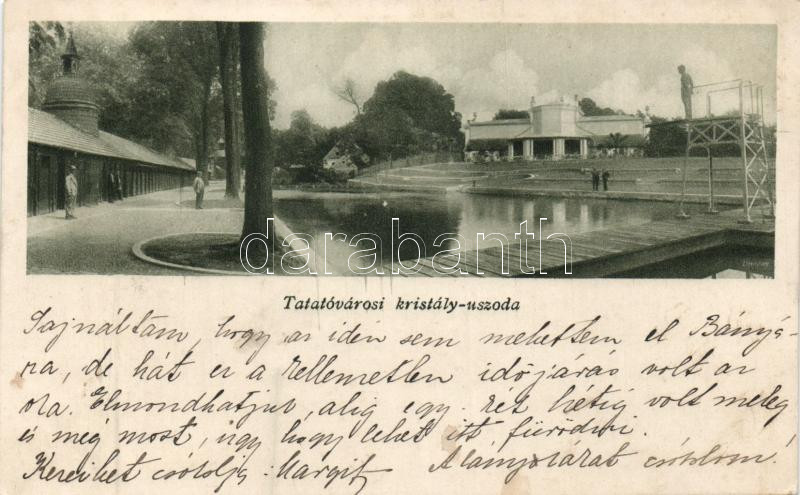 darabanth
Tatatóvárosi kristály-uszoda
Sajnáltam, hogy az idén sem mehettem el Bányá-
ra, de hát ez a kellemetlen időjárás volt az
oka. Elmondhatjuk, alig egy-két hétig volt meleg
és még most, úgy hogy lehet itt fürödni.
csókolja Margit csókolom.